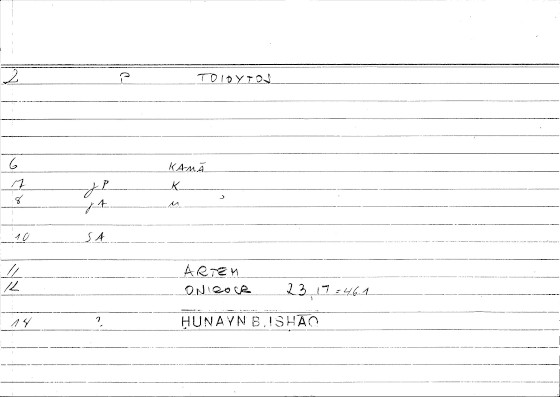 2 P ΤΟΙΟΥΤΟΣ
6 KAMĀ
7 jP K
8 jA
10 SA
11 ARTEM
12 ONIROCR 23,17=461
14 ? ḤUNAYN B. ISḤĀQ